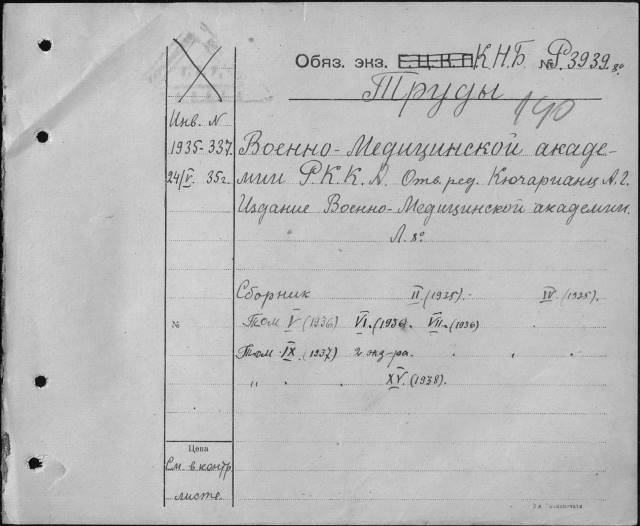 Обяз. экз. Г.Ц.К.П. К.Н.Б. № Р.3939. 8°
Труды
190
Инв. N
1935-337.
24/V. 35г.
Военно-Медицинской акаде-
мии Р.К.К.А. Отв. ред. Кючарианц А.Г.
Издание Военно-Медицинской академии.
Л. 8°
Сборник II. (1935). IV. (1935).
№ Том V (1936) VI. (1936). VII. (1936)
Том IX. (1937) 2 экз-ра.
" . XV. (1938).
Цена
См. в контр.
листе.